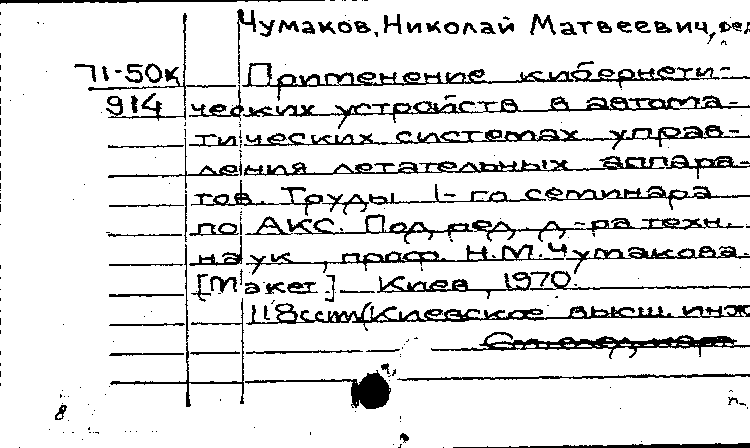 Чумаков, Николай Матвеевич, ред
71-50к Применение кибернети-
914 ческих устройств в автома-
тических системах управ-
ления летательных аппара-
тов. Труды 1-го семинара
по АКС. Под ред. д-ра техн.
наук, проф. Н.М. Чумакова.
[Макет.] Киев, 1970.
118 с. (Киевское высш. инж
См. след. карт
8